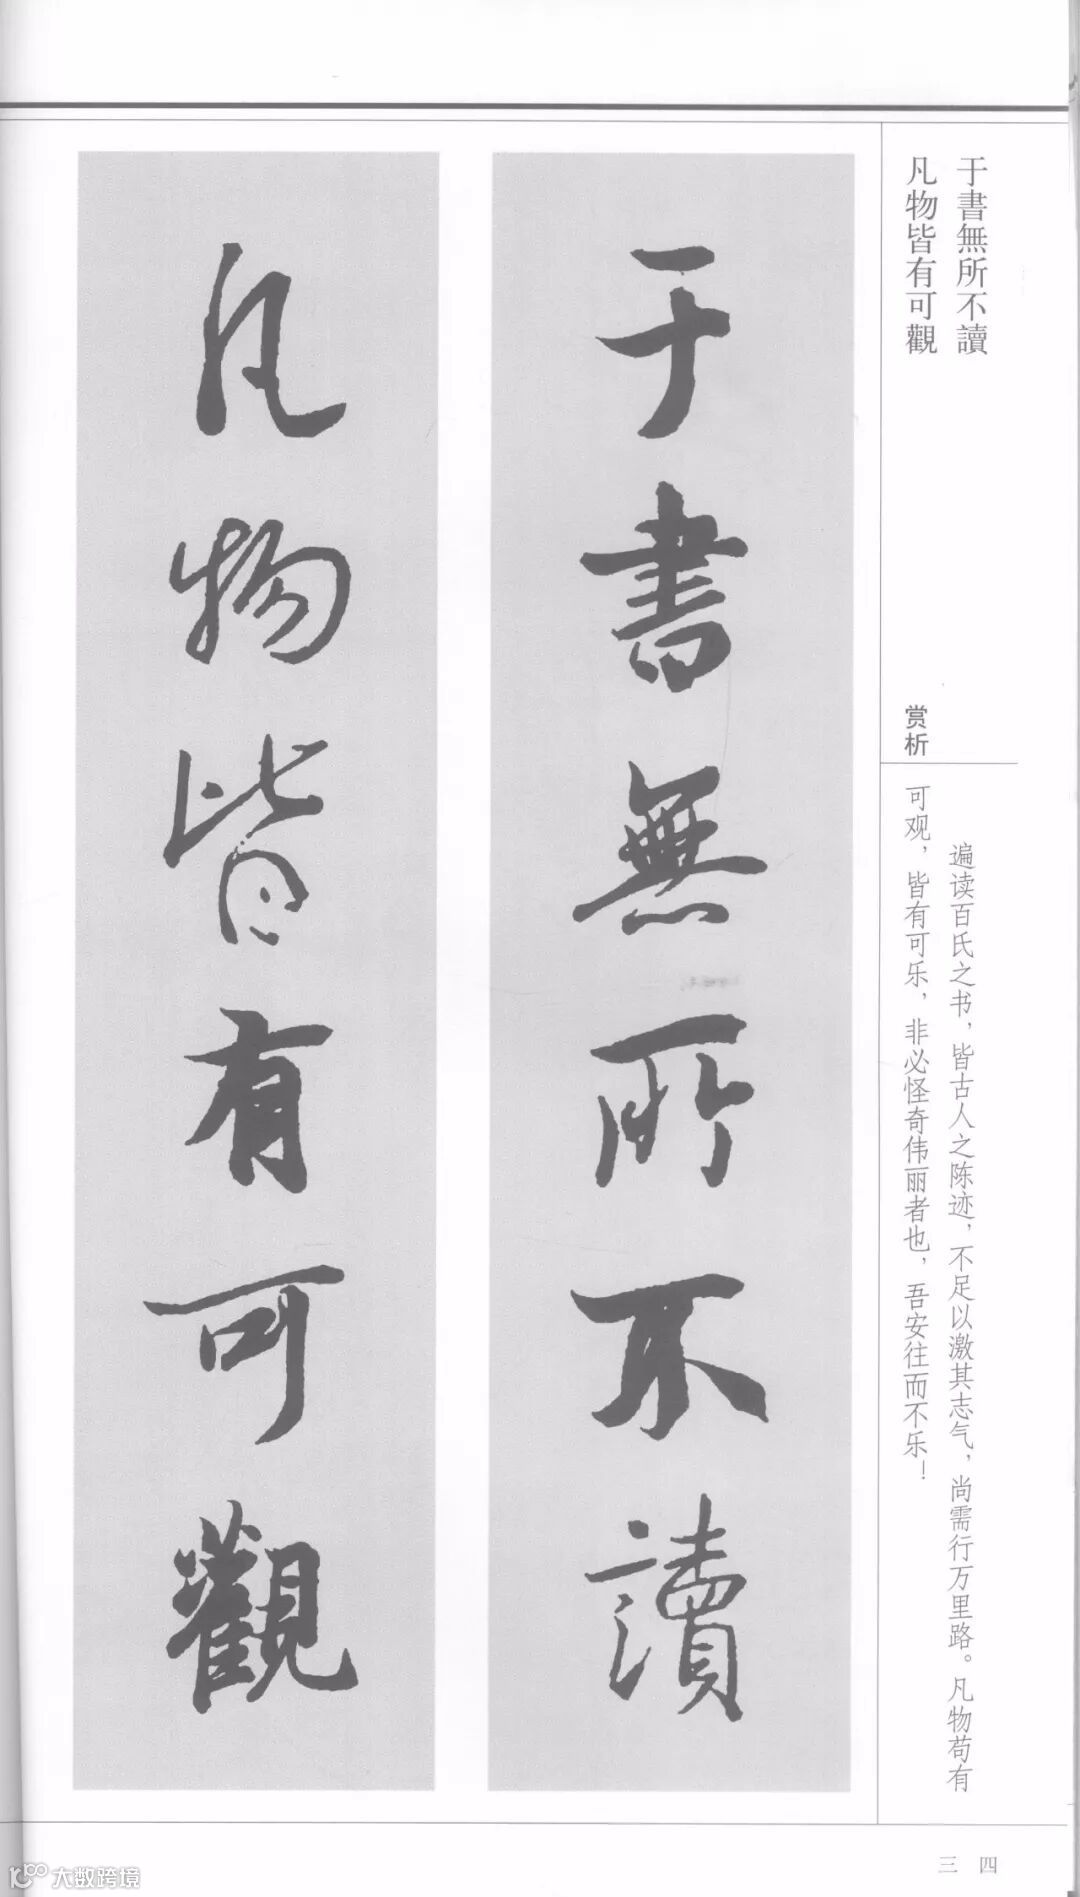 于書無所不讀
凡物皆有可觀
赏析
遍读百氏之书，皆古人之陈迹，不足以激其志气，尚需行万里路。凡物苟有
可观，皆有可乐，非必怪奇伟丽者也，吾安往而不乐！
于書無所不讀
凡物皆有可觀
三四
大数跨境